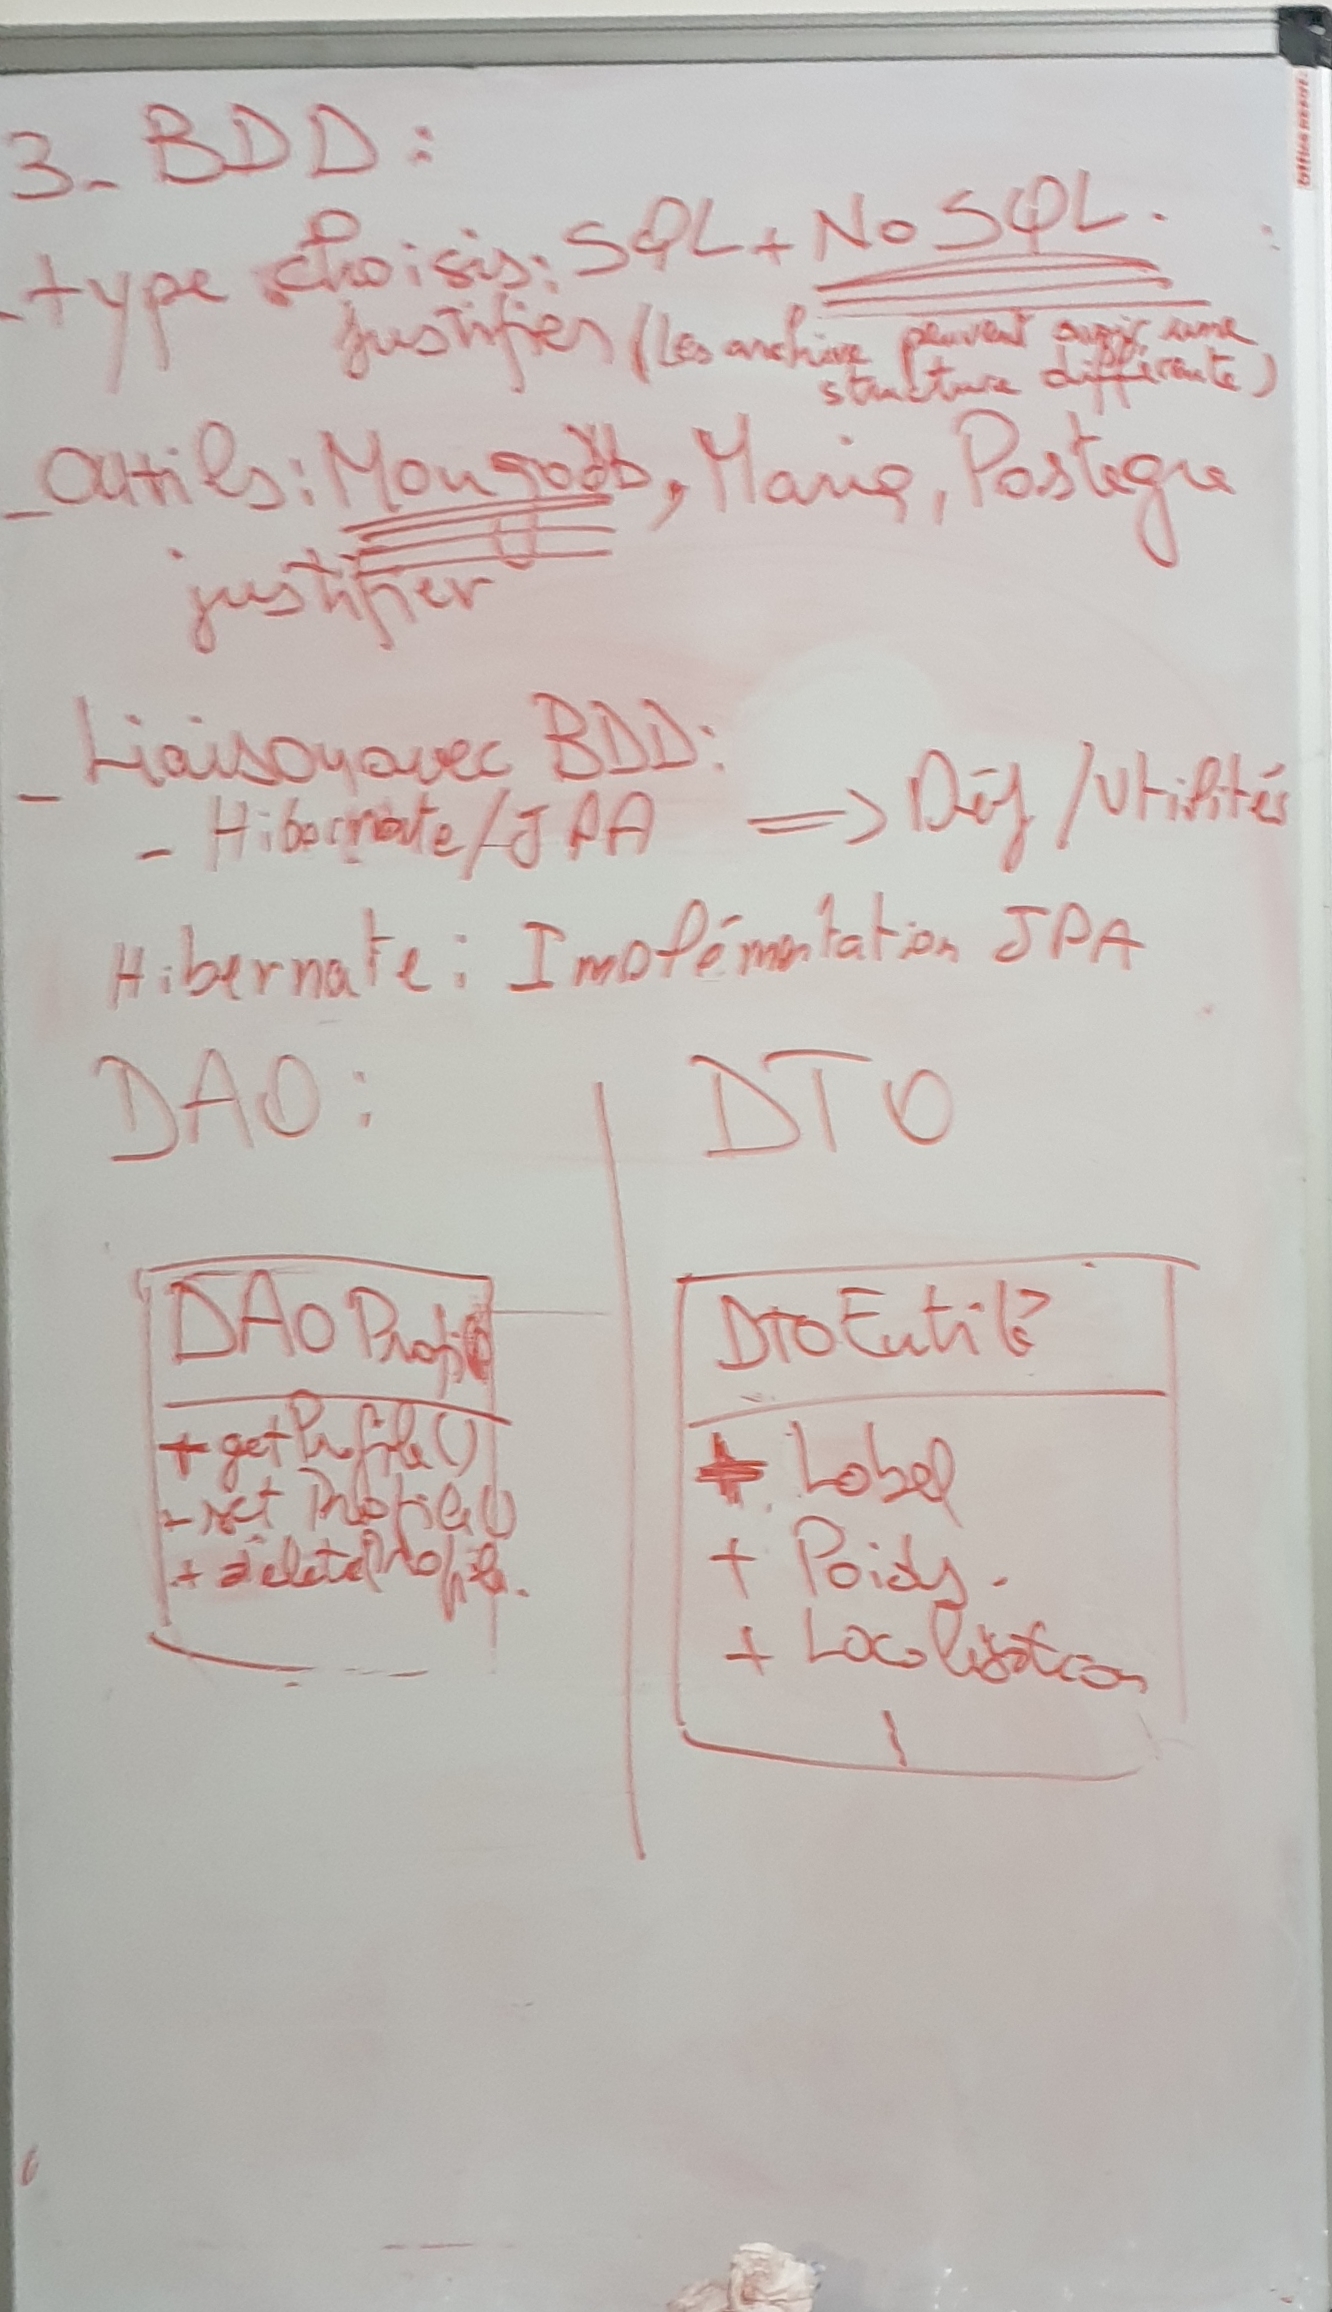 3- BDD:
- type choisis: SQL + NoSQL.
justifier (Les archive peuvent avoir une
structure différente)
- Outils: Mongodb, Maria, Postegre
justifier
- Liaison avec BDD:
- Hibernate/JPA => Déf /Utilités
Hibernate: Implémentation JPA
DAO:
DTO
DAO Profile
+ getProfile()
- set Profile()
+ deleteProfile.
DTO Entité
+ Label
+ Poids.
+ Localisation